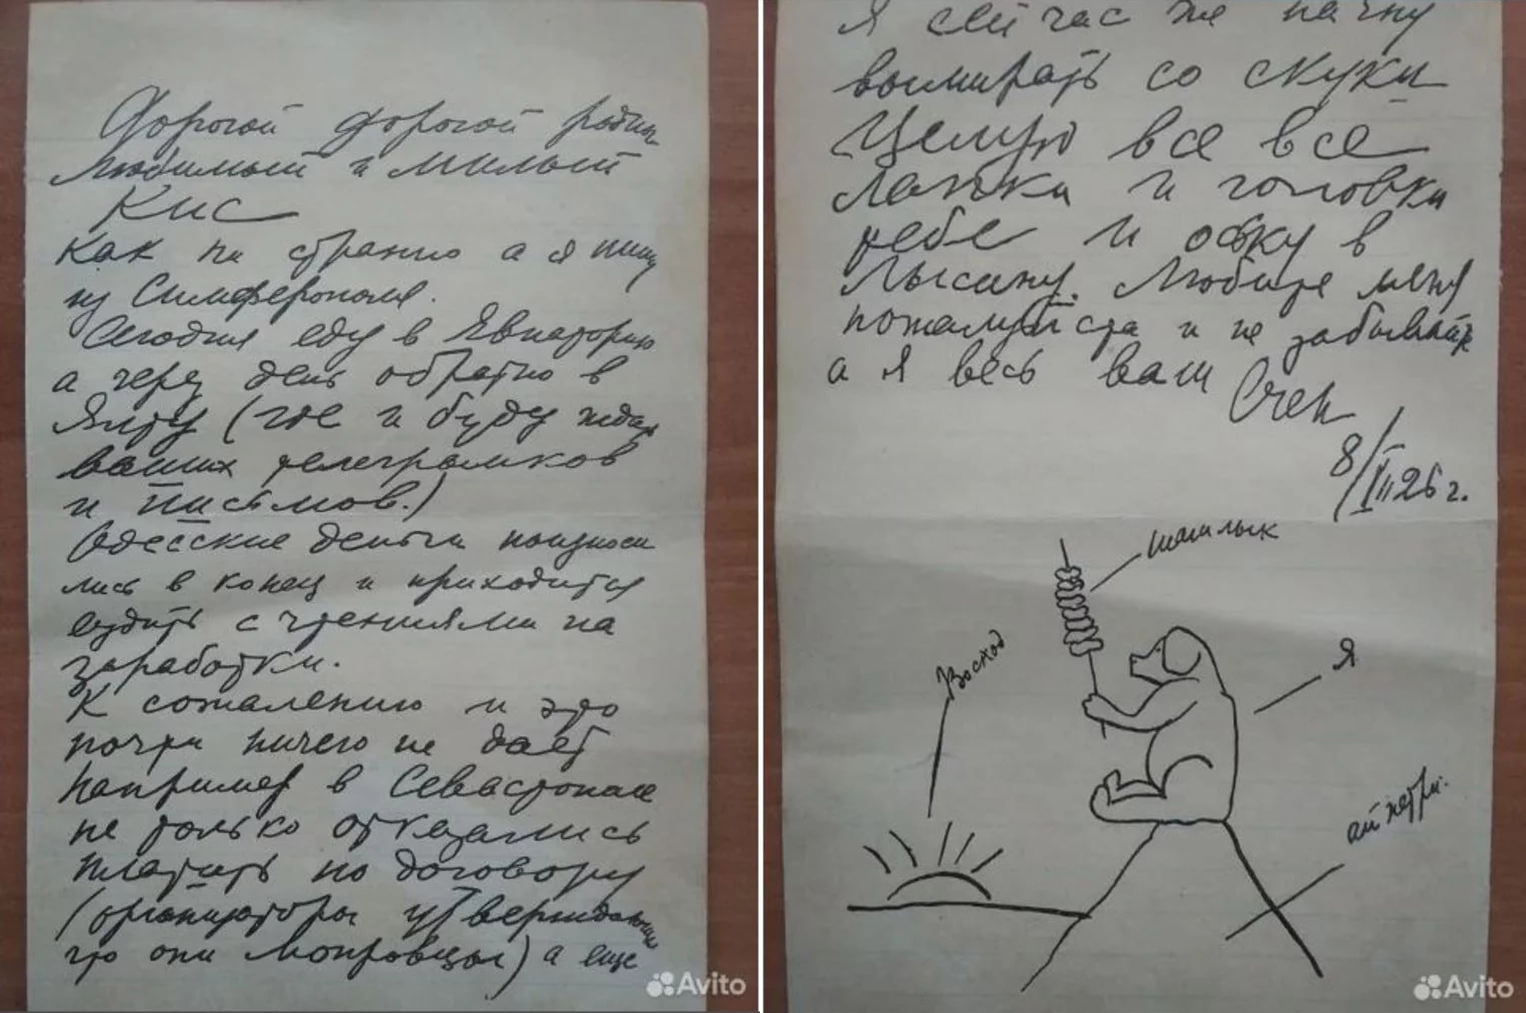 Дорогой дорогой родны
любимый и милый
Кис
Как ни странно а я пишу
из Симферополя.
Сегодня еду в Евпаторию
а через день обратно в
Ялту (где и буду ждать
ваших телеграмков
и письмов.)
Одесские деньги поизноси
лись в конец и приходится
ездить с чтениями на
заработки.
К сожалению и это
почти ничего не дает
например в Севастополе
не только отказались
платить по договору
(организаторы утверждающие
что они мопровцы) а еще
Avito
Я сейчас же начну
вымирать со скуки
Целую все все
лапки и головки
тебе и оську в
лысину. Любите меня
пожалуйста и не забывайте
а я весь ваш Счен
8/VII 26 г.
шашлык
Восход
Я
ай петри.
Avito